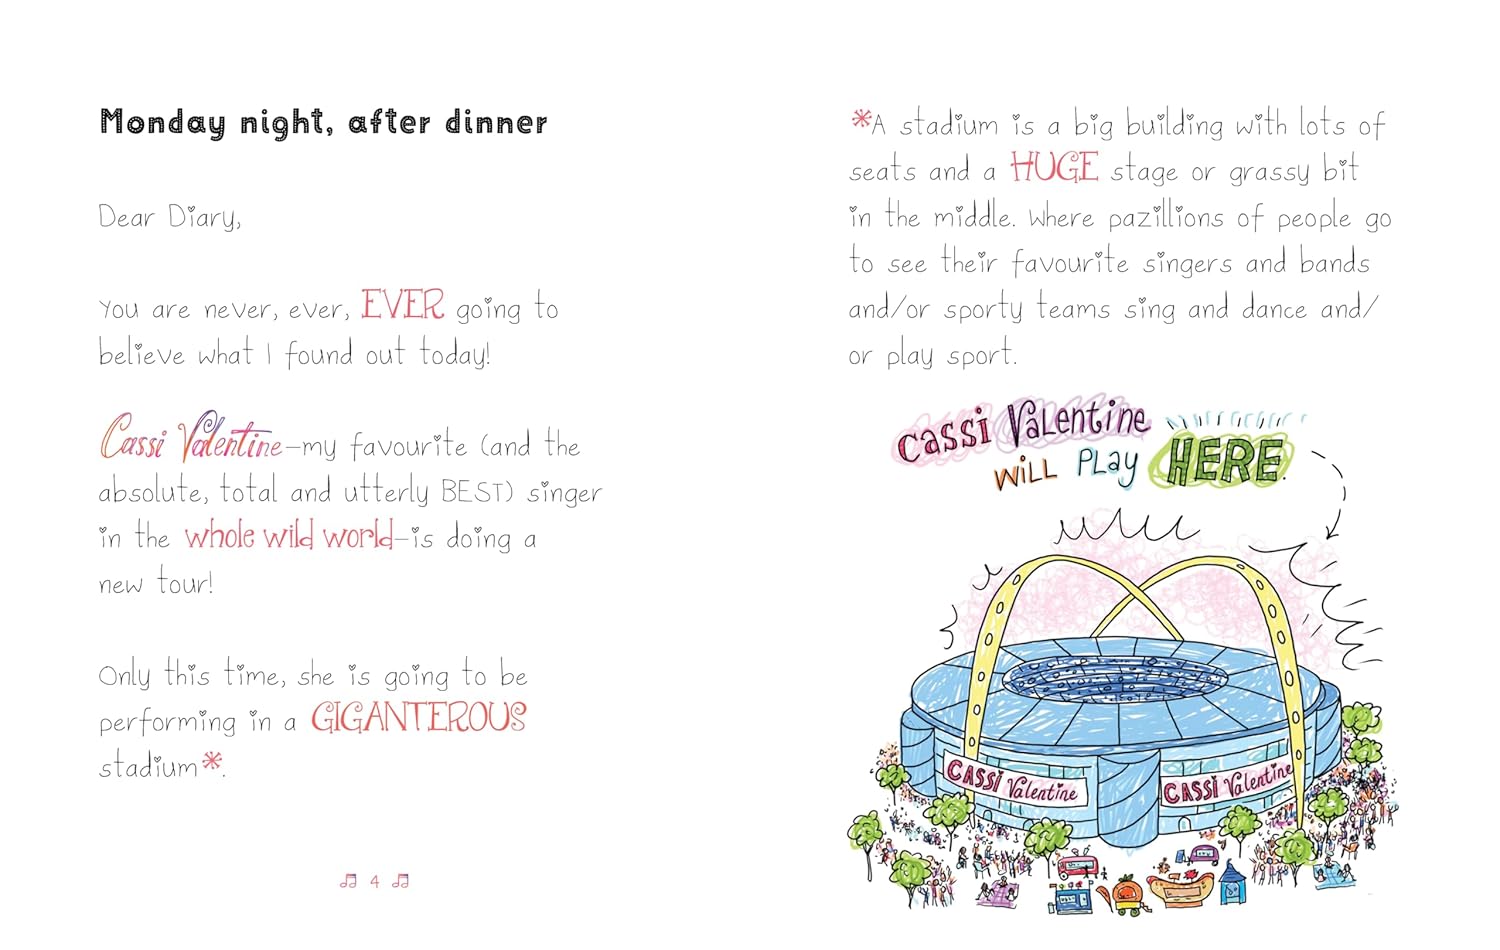 Monday night, after dinner
Dear Diary,
You are never, ever, EVER going to
believe what I found out today!
Cassi Valentine—my favourite (and the
absolute, total and utterly BEST) singer
in the whole wild world—is doing a
new tour!
Only this time, she is going to be
performing in a GIGANTEROUS
stadium*.
4
*A stadium is a big building with lots of
seats and a HUGE stage or grassy bit
in the middle. Where pazillions of people go
to see their favourite singers and bands
and/or sporty teams sing and dance and/
or play sport.
Cassi Valentine
WiLL PLay HERE.
CASSi Valentine
CASSi Valentine